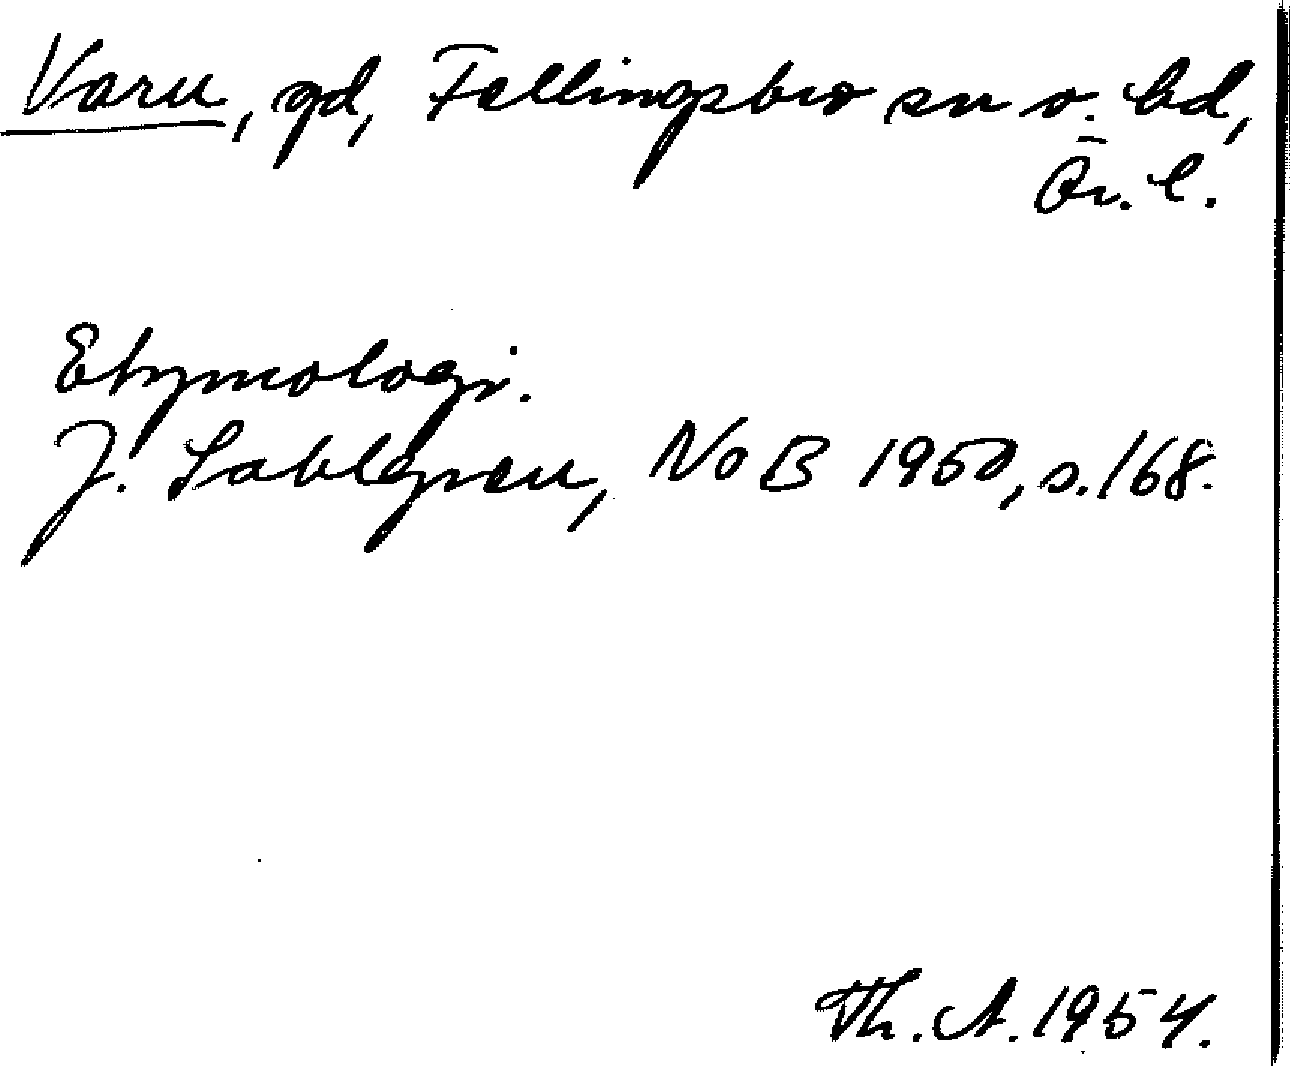 Varu, gd, Fellingsbro sn o. hd,
Ör. l.
Etymologi.
J. Sahlgren, NoB 1950, s. 168.
Th. A. 1954.